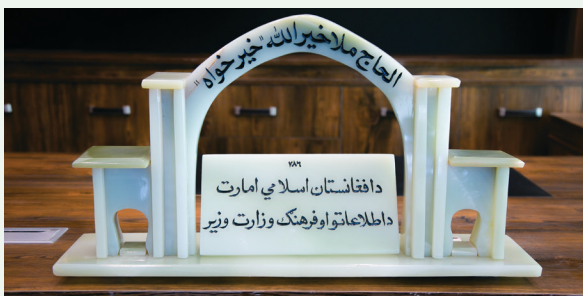 الحاج ملا خیرالله "خیرخواه"
۷۸۶
د افغانستان اسلامي امارت
د اطلاعاتو او فرهنګ وزارت وزیر